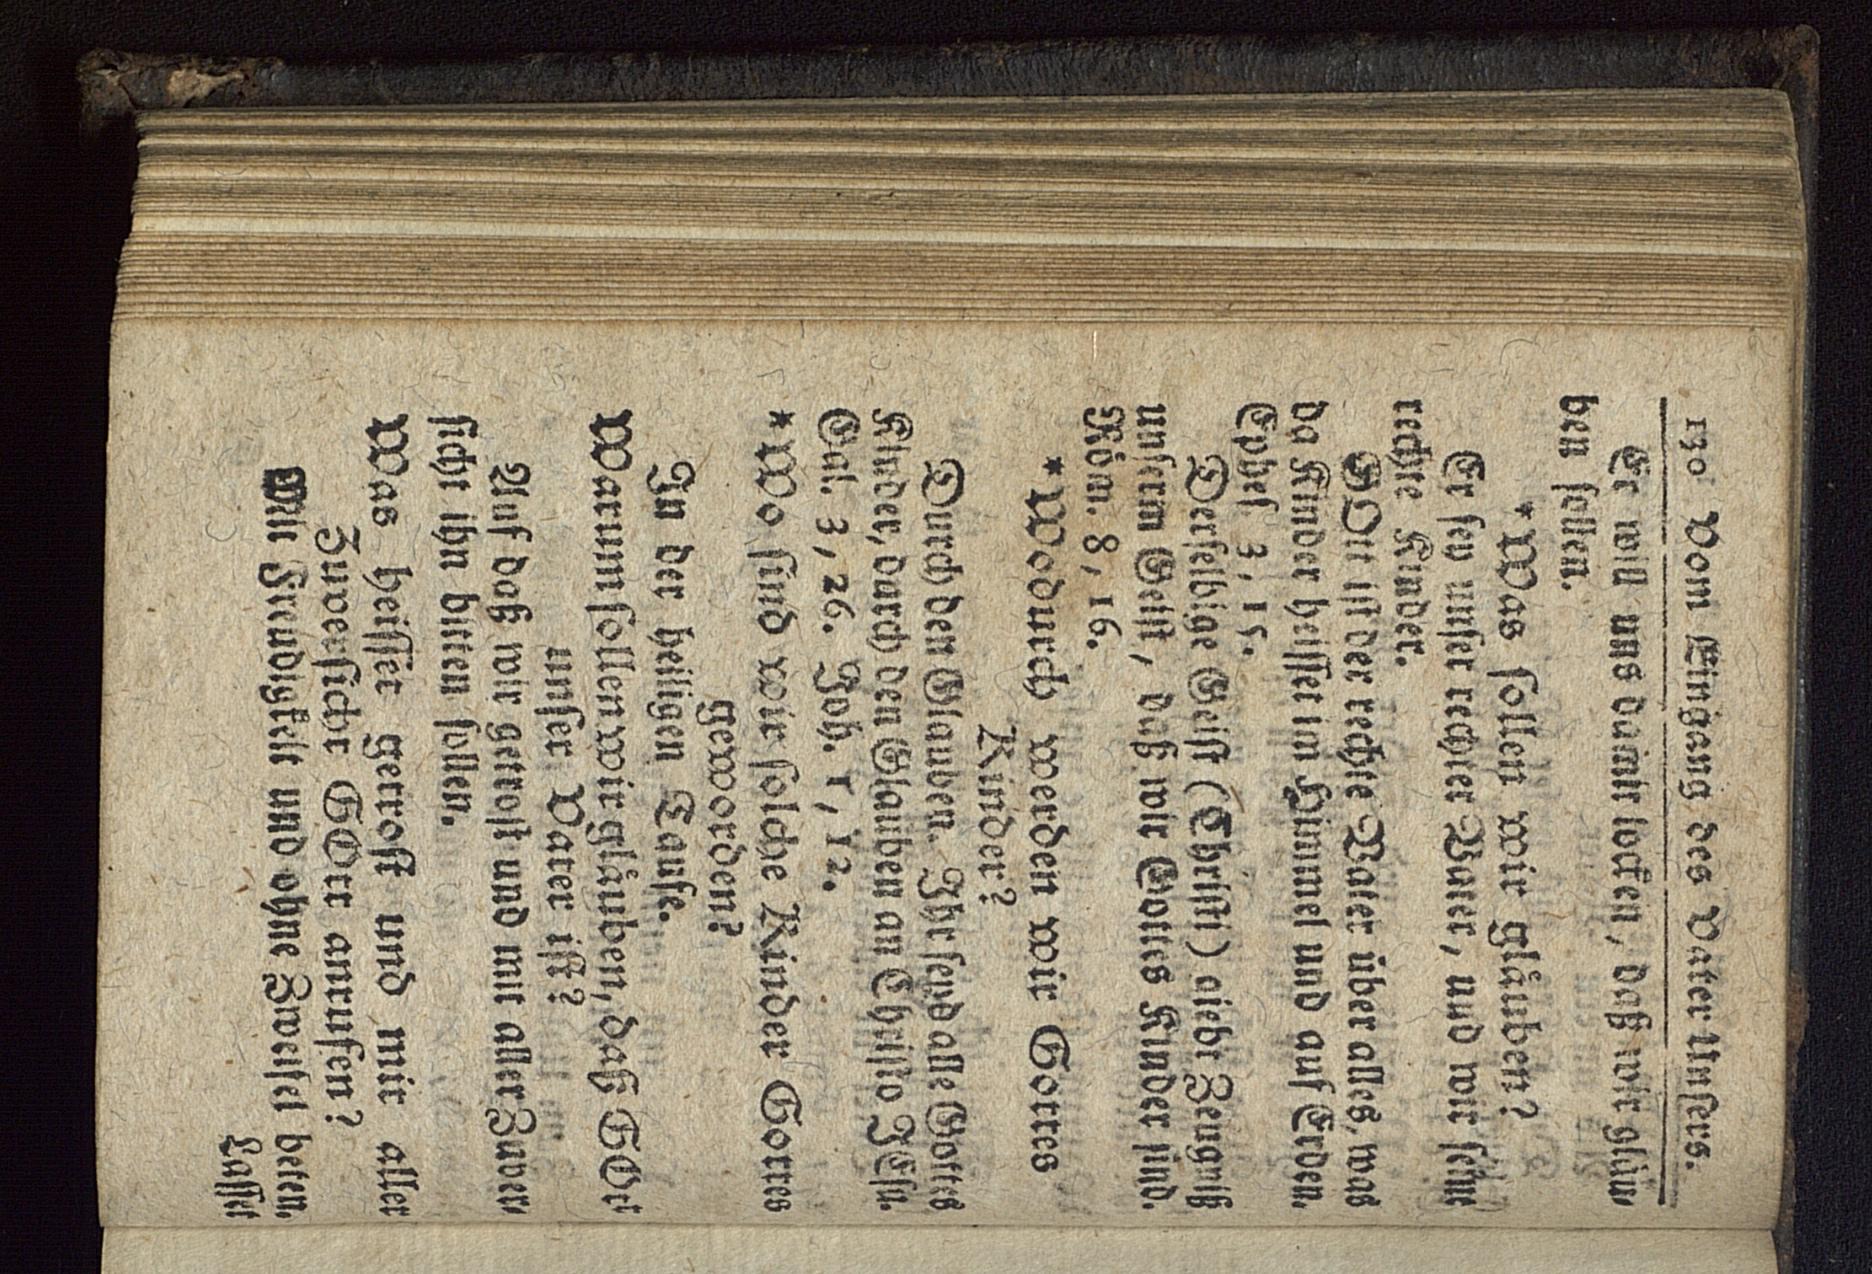 130 Vom Eingang des Vater Unsers.
Er will uns damit locken, daß wir gläu-
ben sollen.
* Was sollen wir gläuben?
Er sey unser rechter Vater, und wir seine
rechte Kinder.
GOtt ist der rechte Vater über alles, was
da Kinder heisset im Himmel und auf Erden.
Ephes. 3, 15.
Derselbige Geist (Christi) giebt Zeugniß
unserm Geist, daß wir Gottes Kinder sind.
Röm. 8, 16.
* Wodurch werden wir Gottes
Kinder?
Durch den Glauben. Ihr seyd alle Gottes
Kinder, durch den Glauben an Christo JEsu.
Gal. 3, 26. Joh. 1, 12.
* Wo sind wir solche Kinder Gottes
geworden?
In der heiligen Taufe.
Warum sollen wir gläuben, daß GOtt
unser Vater ist?
Auf daß wir getrost und mit aller Zuver-
sicht ihn bitten sollen.
Was heisset getrost und mit aller
Zuversicht GOtt anrufen?
Mit Freudigkeit und ohne Zweifel beten.
Lasset